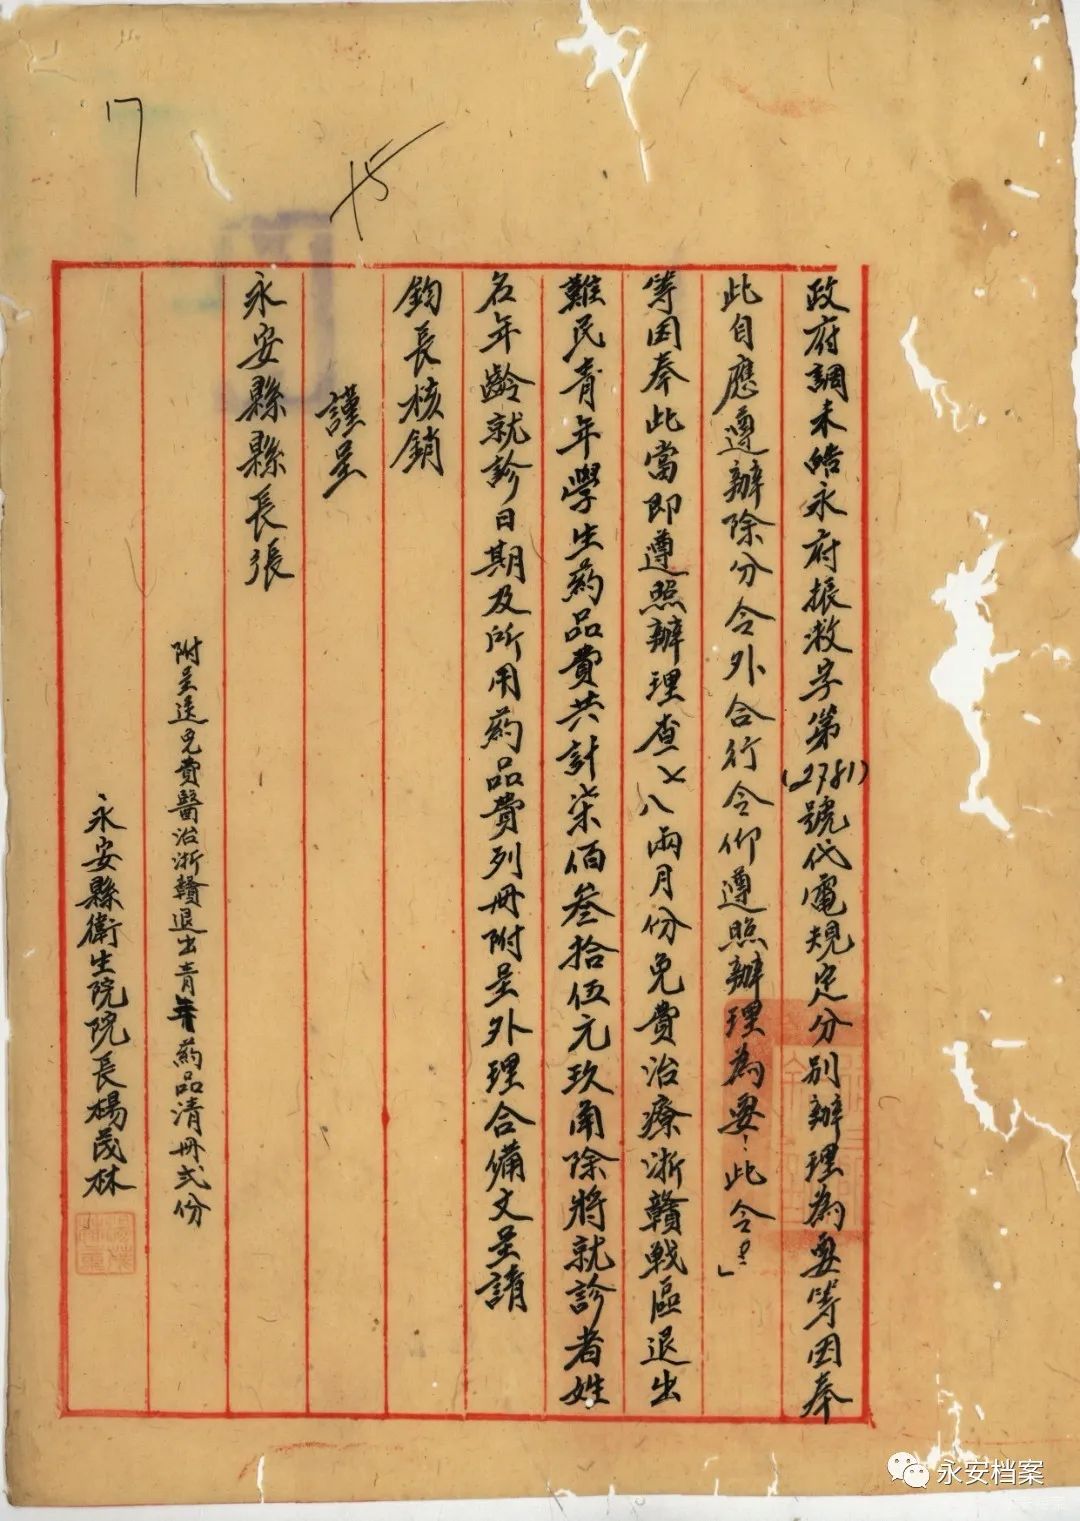 17
十5
政府調未皓永府振救字第(2781)號代電規定分別辦理為要等因奉
此自應遵辦除分令外合行令仰遵照辦理為要!此令!」
等因奉此當即遵照辦理查七八兩月份免費治療浙贛戰區退出
難民青年學生葯品費共計柒佰叁拾伍元玖角除將就診者姓
名年齡就診日期及所用葯品費列冊附呈外理合備文呈請
鈞長核銷
謹呈
永安縣縣長張
附呈送免費醫治浙贛退出青年葯品清冊弍份
永安縣衛生院院長楊茂林
永安档案